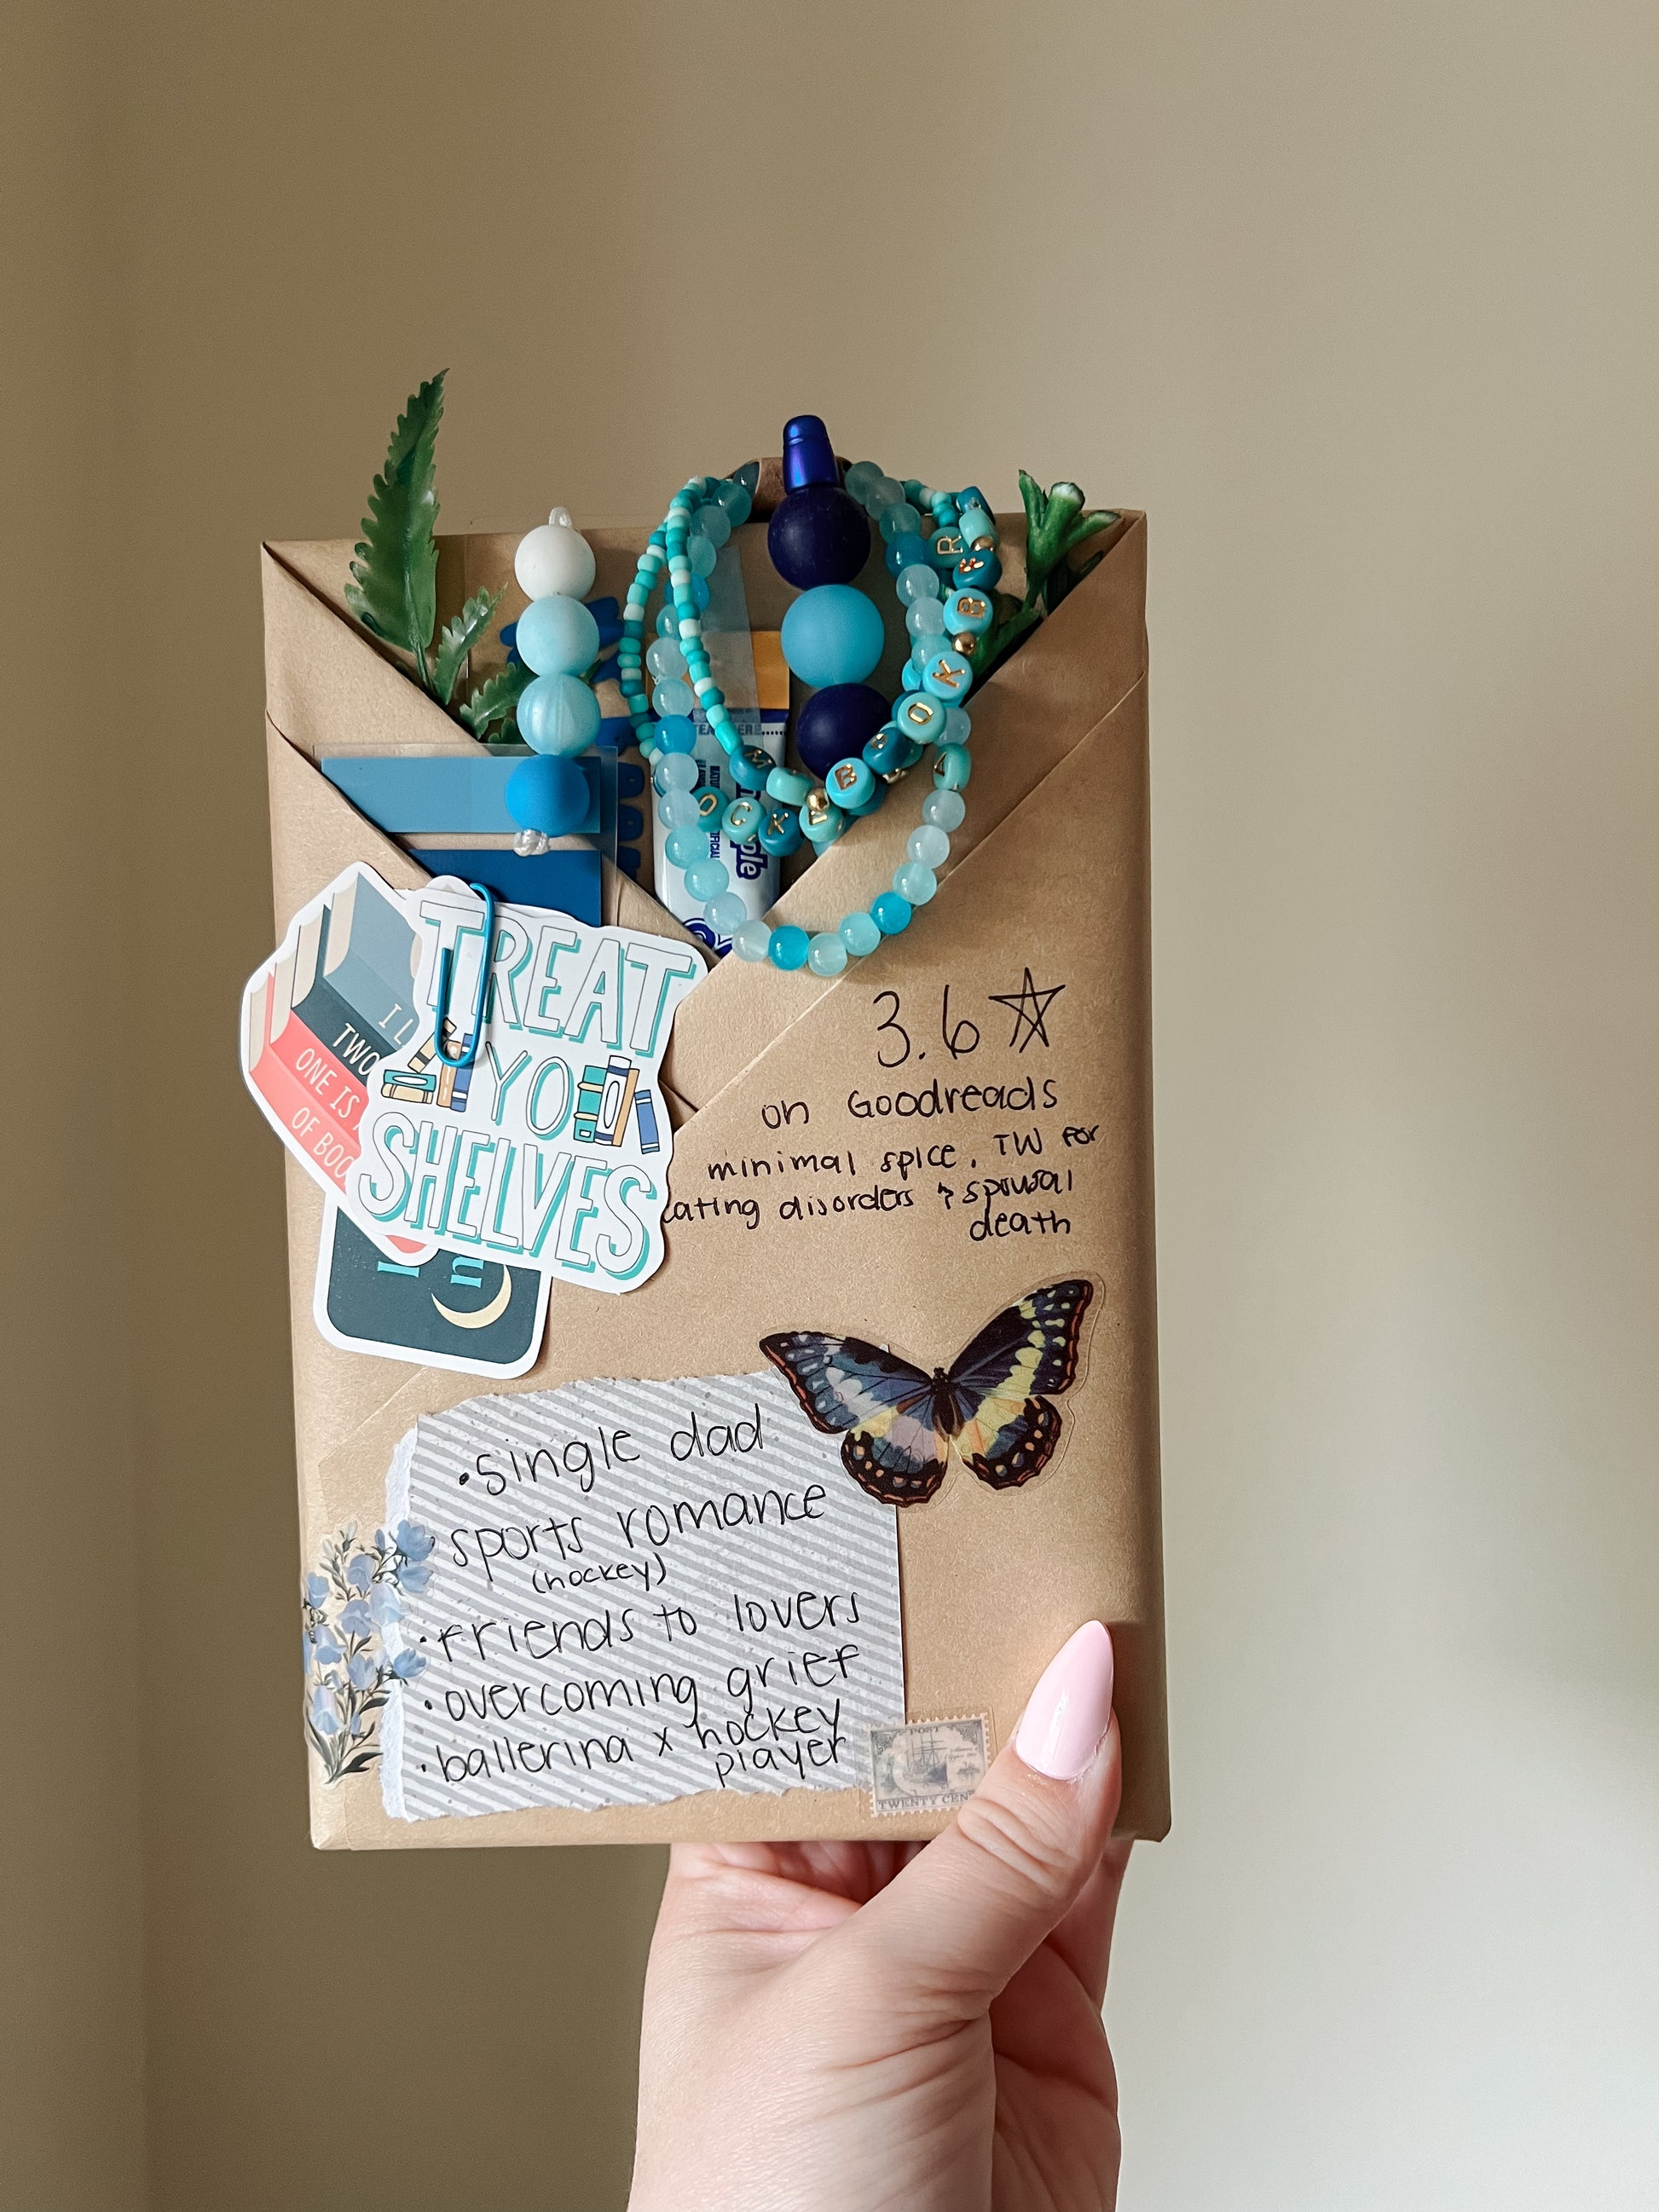 TREAT
YO
SHELVES
I L
TWO
ONE IS
OF BOO
3.6
on Goodreads
minimal spice, TW for
eating disorders & spousal
death
• single dad
sports romance
(hockey)
• friends to lovers
• overcoming grief
• ballerina x hockey
player
POST
TWENTY CEN